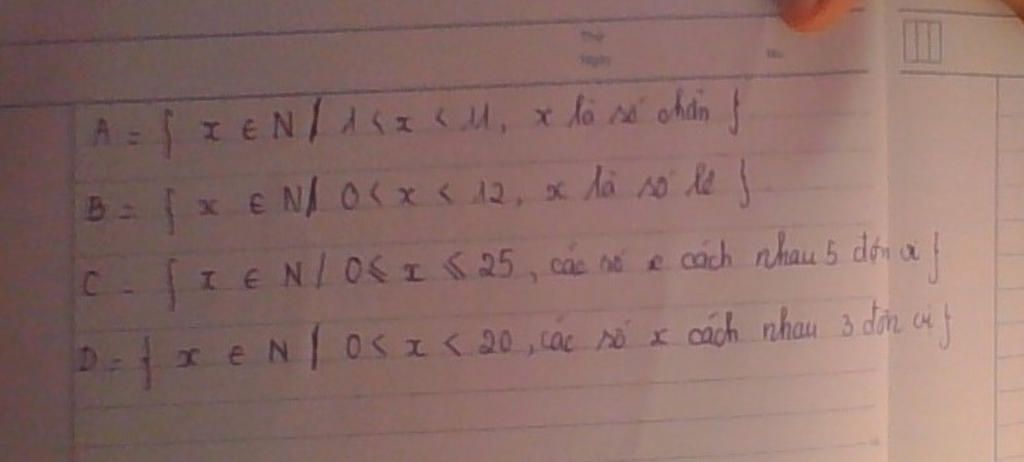 Thứ
Ngày
No.
A = { x ∈ N / 1 < x < 11, x là số chẵn }
B = { x ∈ N / 0 < x < 12, x là số lẻ }
C = { x ∈ N / 0 ⩽ x ⩽ 25, các số x cách nhau 5 đơn vị }
D = { x ∈ N / 0 < x < 20, các số x cách nhau 3 đơn vị }